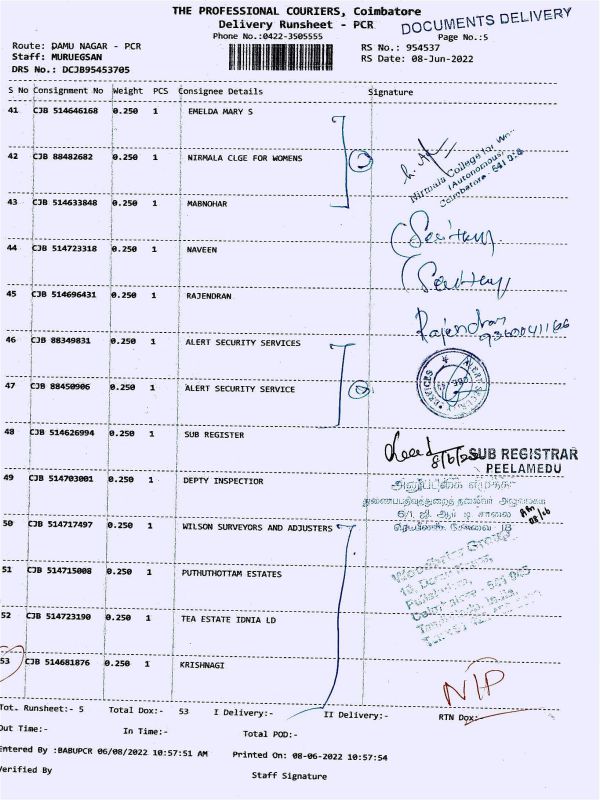 THE PROFESSIONAL COURIERS, Coimbatore
Delivery Runsheet - PCR
DOCUMENTS DELIVERY
Phone No.:0422-3505555
Page No.:5
Route: DAMU NAGAR - PCR
RS No.: 954537
Staff: MURUEGSAN
RS Date: 08-Jun-2022
DRS No.: DCJB95453705
S No Consignment No Weight PCS Consignee Details Signature
41 CJB 514646168 0.250 1 EMELDA MARY S
42 CJB 88482682 0.250 1 NIRMALA CLGE FOR WOMENS
Nirmala College for
(Autonomous)
Coimbatore
43 CJB 514633848 0.250 1 MABNOHAR
44 CJB 514723318 0.250 1 NAVEEN
45 CJB 514696431 0.250 1 RAJENDRAN
Rajendran
46 CJB 88349831 0.250 1 ALERT SECURITY SERVICES
47 CJB 88450906 0.250 1 ALERT SECURITY SERVICE
48 CJB 514626994 1 SUB REGISTER
8/6/22
SUB REGISTRAR
PEELAMEDU
49 CJB 514703001 0.250 1 DEPTY INSPECTIOR
50 CJB 514717497 0.250 1 WILSON SURVEYORS AND ADJUSTERS
51 CJB 514715008 0.250 1 PUTHUTHOTTAM ESTATES
52 CJB 514723190 0.250 1 TEA ESTATE IDNIA LD
53 CJB 514681876 0.250 1 KRISHNAGI
NIP
Tot. Runsheet:- 5 Total Dox:- 53 I Delivery:- II Delivery:- RTN Dox:-
Out Time:- In Time:- Total POD:-
Entered By :BABUPCR 06/08/2022 10:57:51 AM Printed On: 08-06-2022 10:57:54
Verified By
Staff Signature